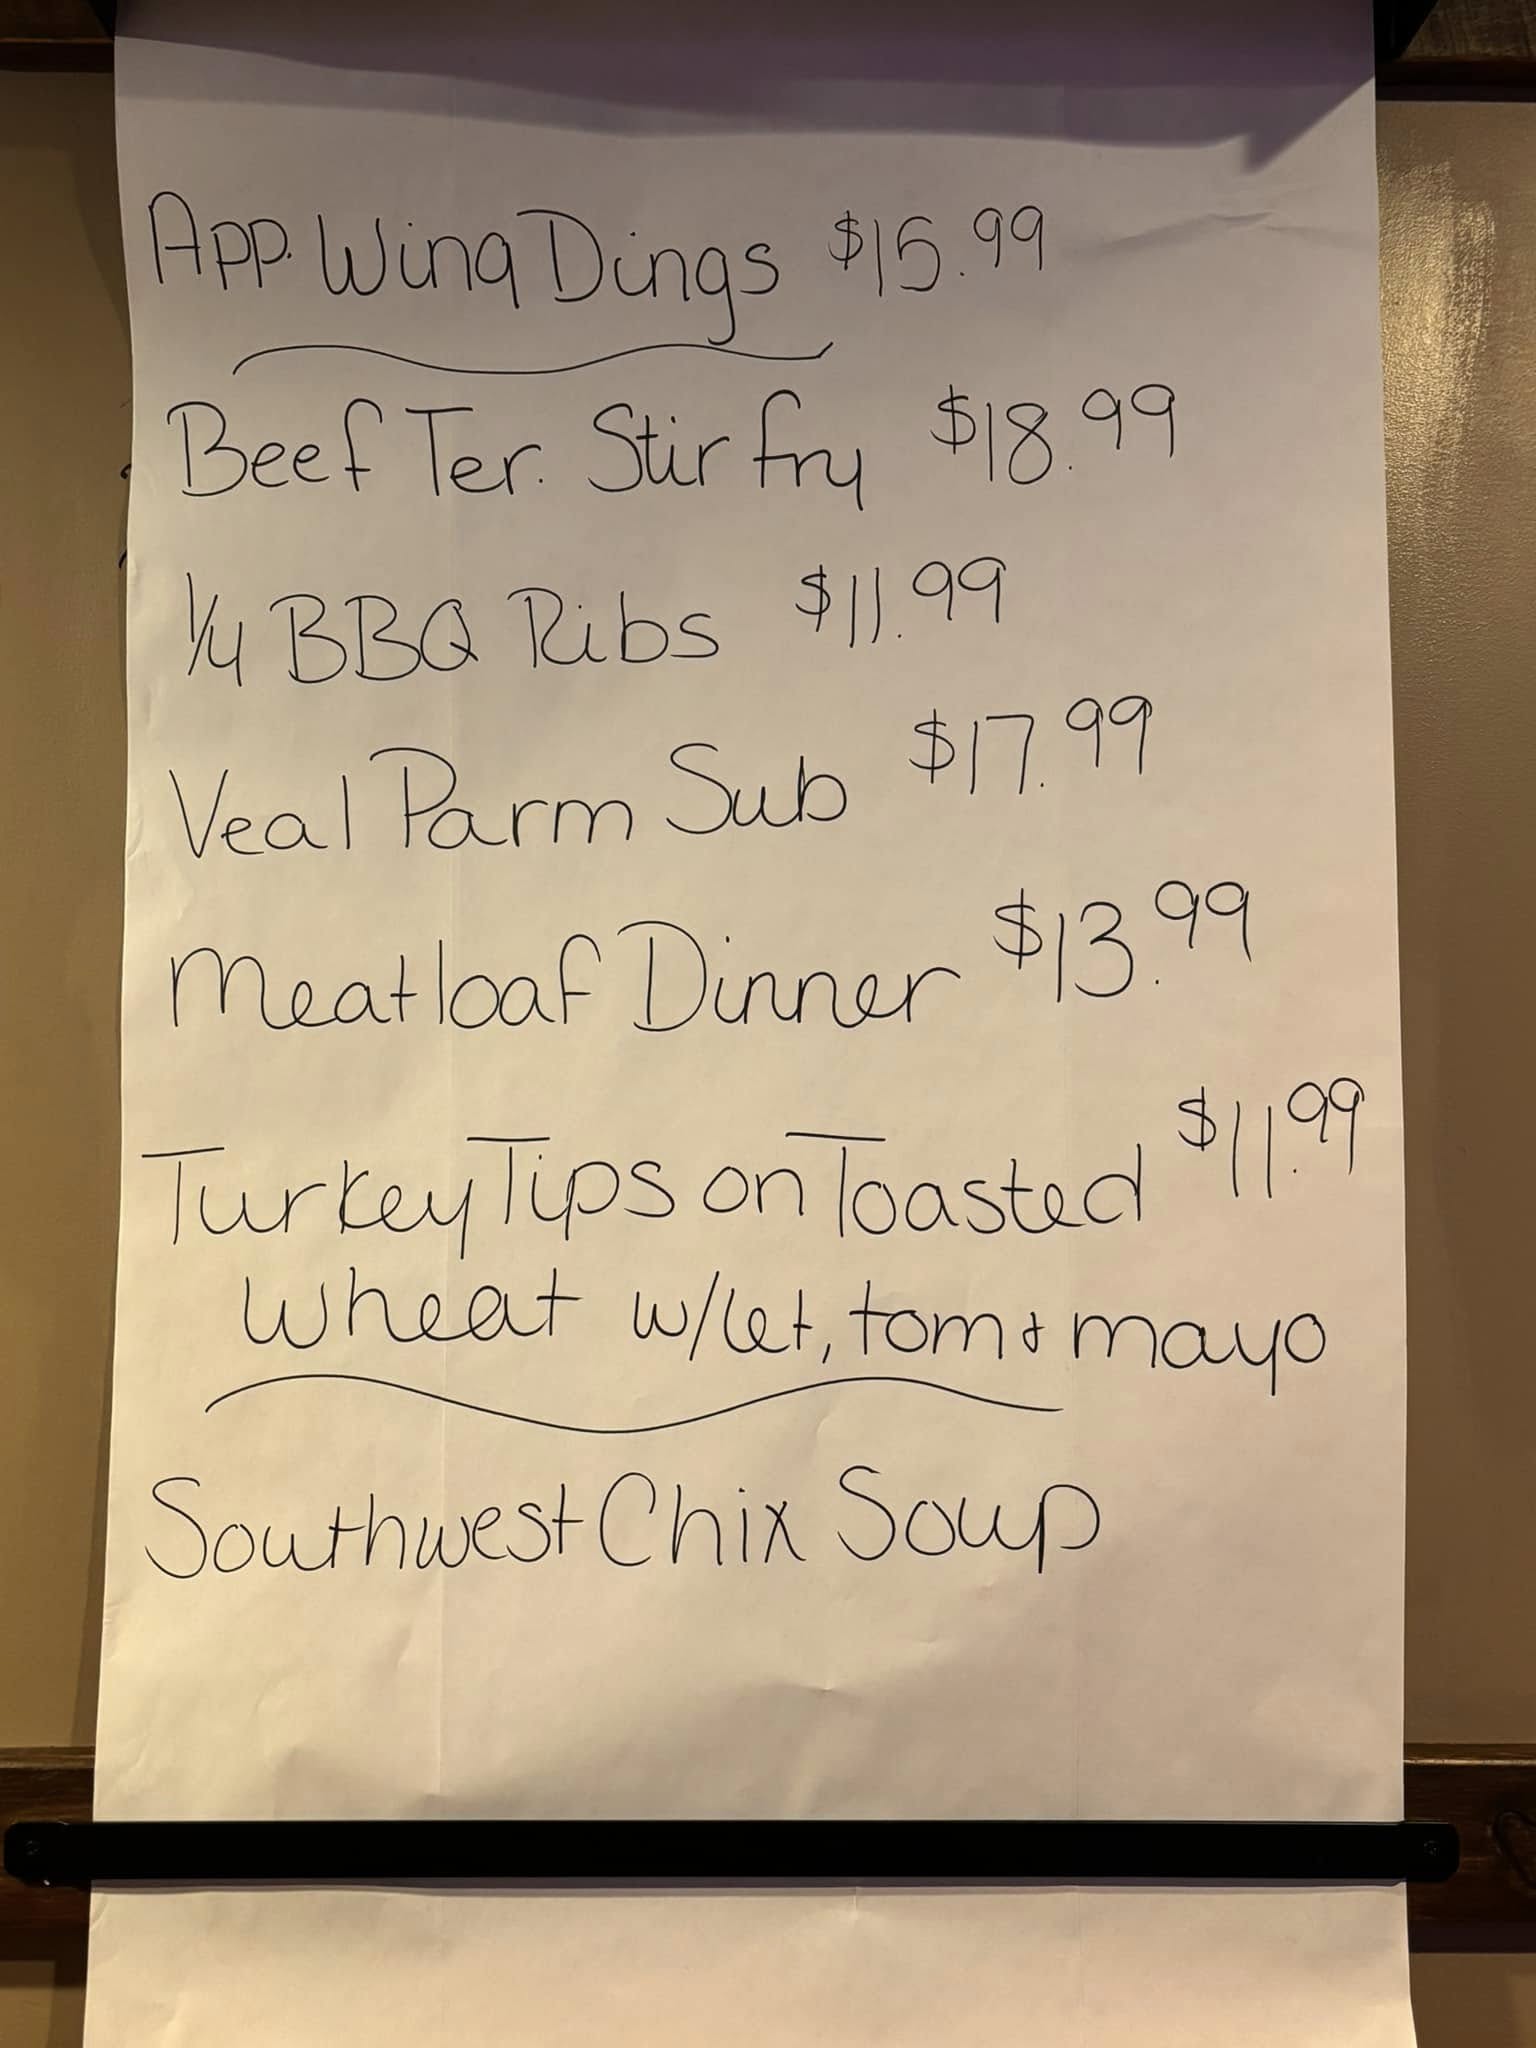 App. Wing Dings $15.99
Beef Ter. Stir fry $18.99
1/4 BBQ Ribs $11.99
Veal Parm Sub $17.99
Meatloaf Dinner $13.99
Turkey Tips on Toasted $11.99
Wheat w/let, tom + mayo
Southwest Chix Soup